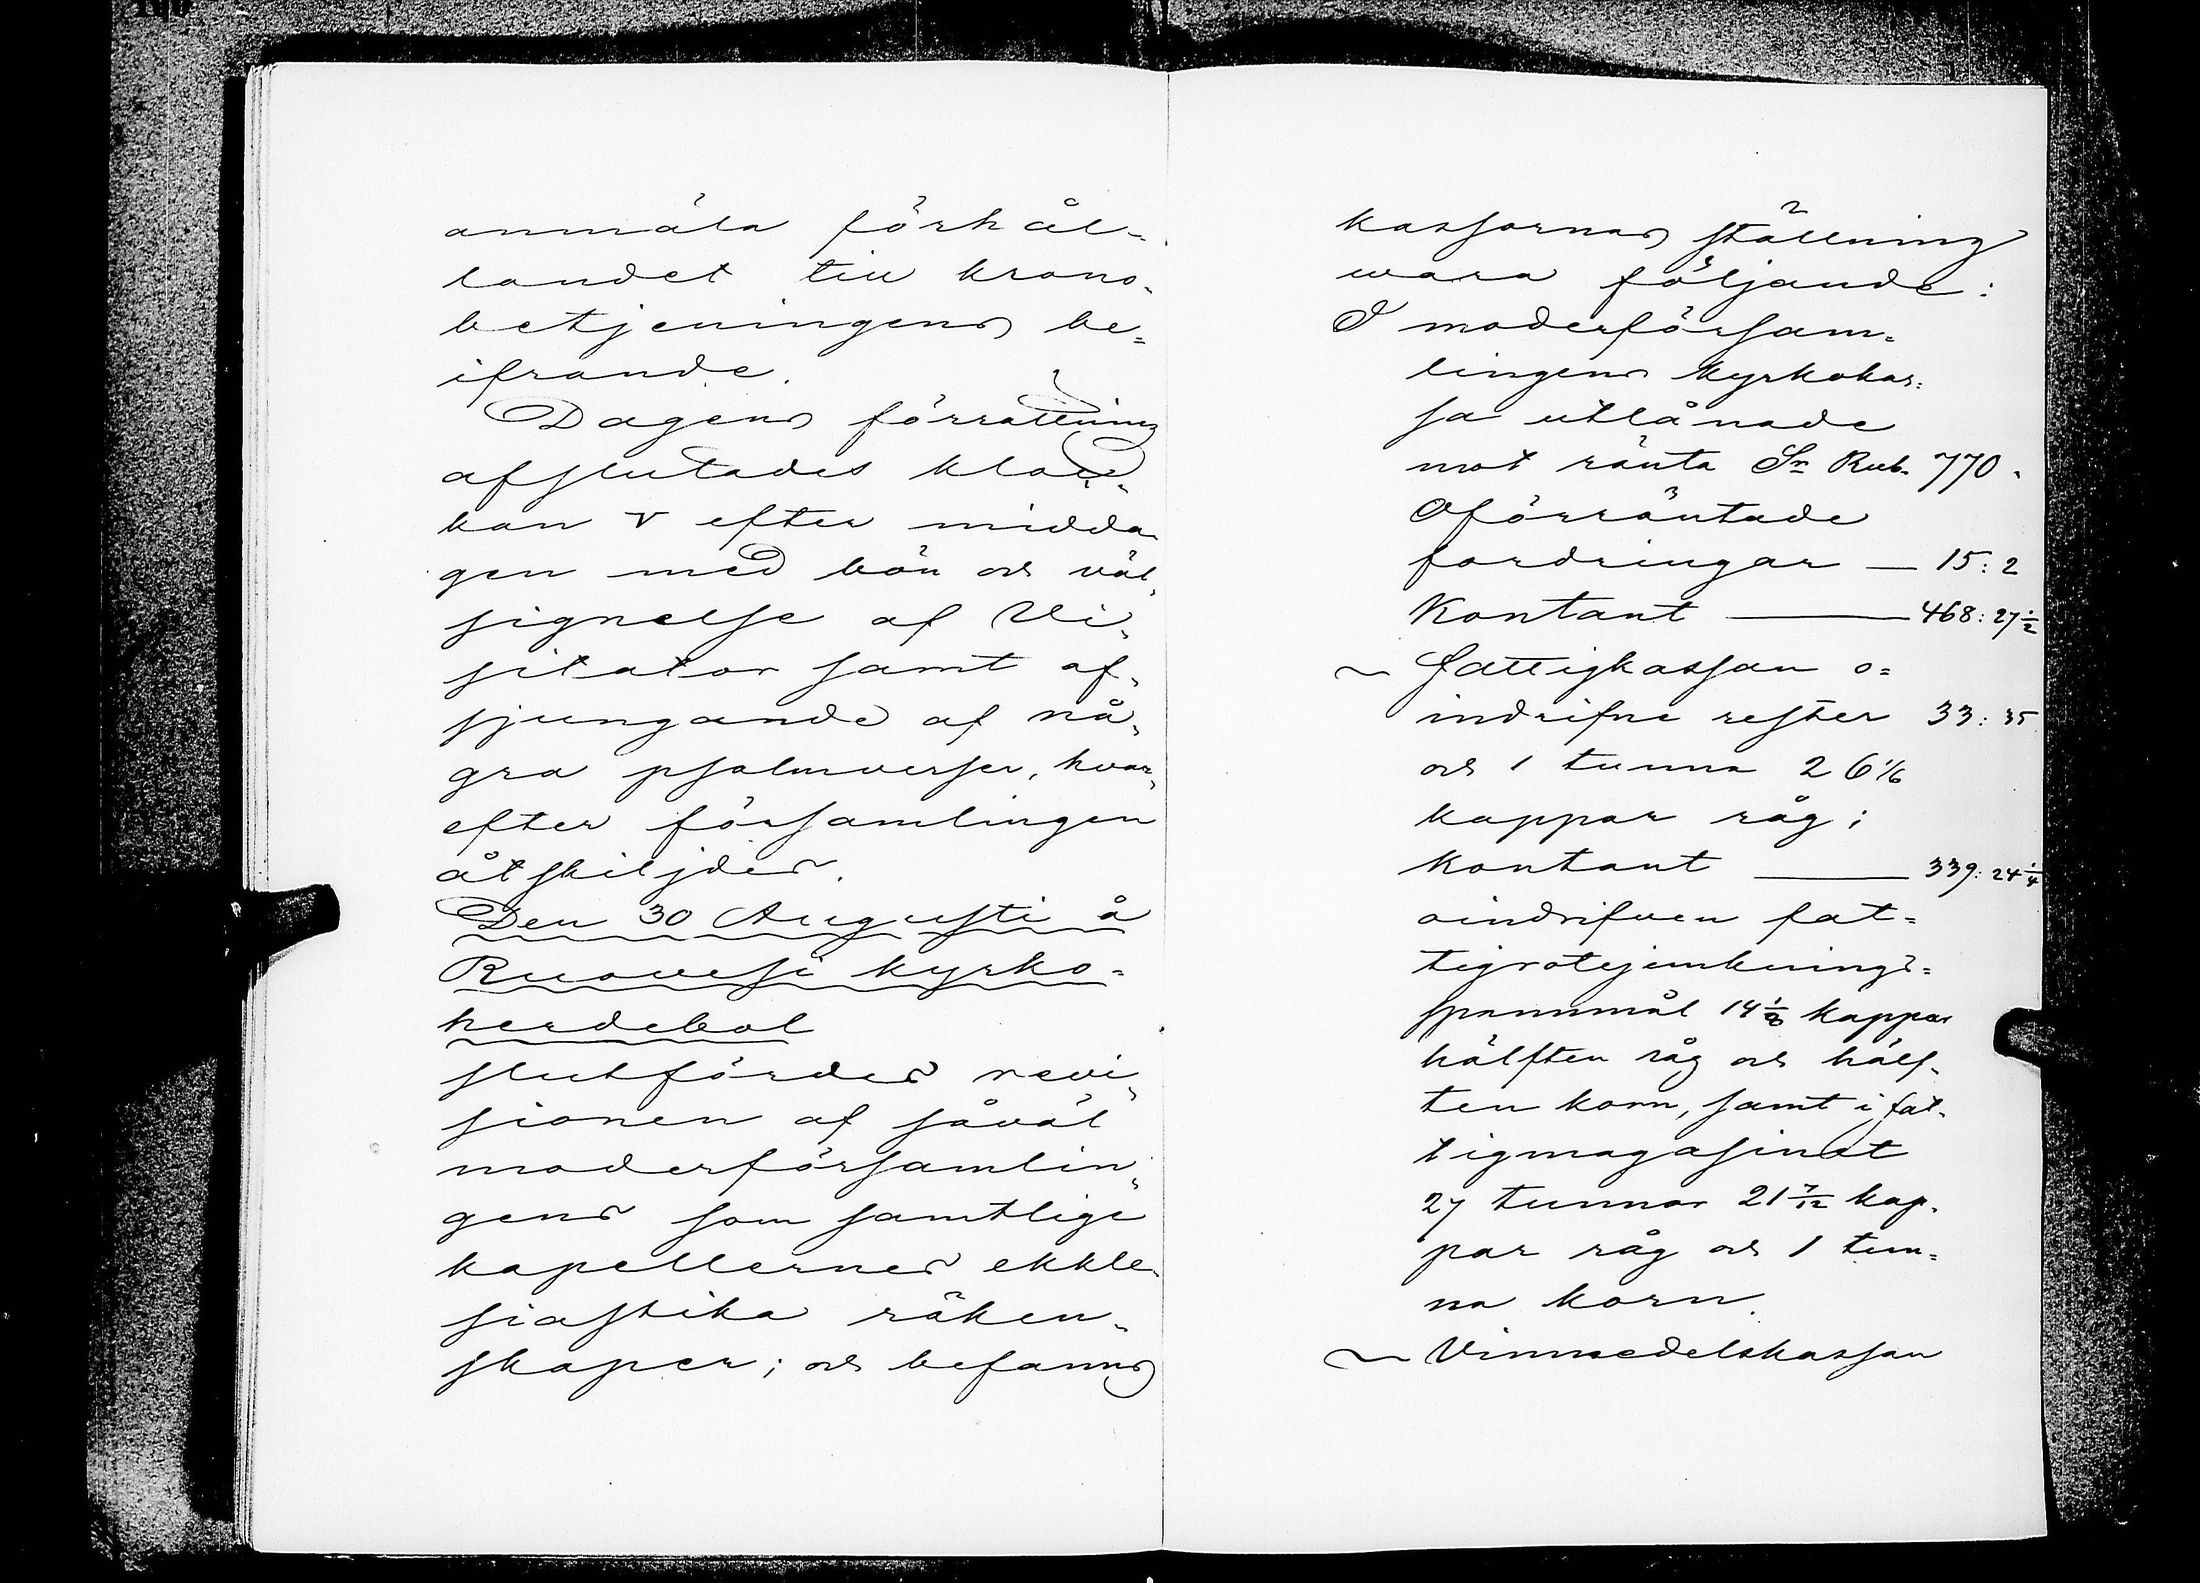 anmäla förhål-
landet till krono-
betjeningens be-
ifrande.
Dagens förrättning
afslutades kloc-
kan v efter midda
gen med bön och väl-
signelse af Vi-
sitator samt af-
sjungande af nå-
gra psalmverser, hvar-
efter församlingen
åtskiljdes.
Den 30 Augusti å
Ruovesi kyrko-
herdebol
slutfördes revi-
sionen af såväl
moderförsamlin-
gens som samtlige
kapellernes ekkle-
siastika räken-
skaper; och befanns
kassornas ställning
wara följande:
I moderförsam-
lingens kyrkokas-
sa utlånade
mot ränta Sr Rub. 770.
Oförräntade
fordringar — 15: 2
Kontant — 468: 27 1/2
~ Fattigkassan o-
indrifne rester 33: 35
och 1 tunna 26 1/6
kappar råg;
kontant — 339: 24 1/4
oindrifven fat-
tigrotejemknings-
spannmål 14 1/8 kappar
hälften råg och hälf-
ten korn, samt i fat-
tigmagasinet
27 tunnor 21 7/12 kap-
par råg och 1 tun-
na korn.
~ Vinmedelskassan